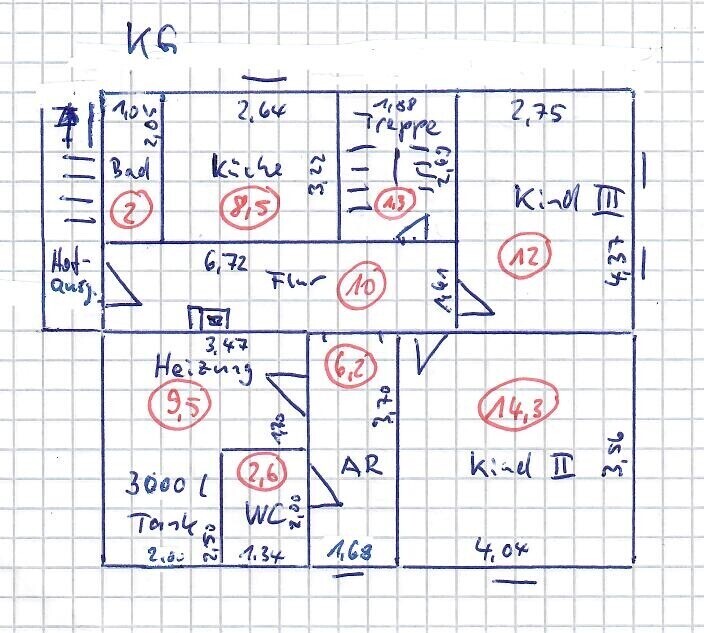 KG
1,05
2,05
Bad
2
2,64
Küche
3,22
8,5
1,88
Treppe
2,69
1,3
2,75
Kind III
12
4,37
Hof-
ausg.
6,72
Flur
10
1,61
3,47
Heizung
9,5
1,70
3000 l
Tank
2,00
2,50
2,6
WC
2,00
1,34
6,2
3,70
AR
1,68
14,3
Kind II
3,56
4,04